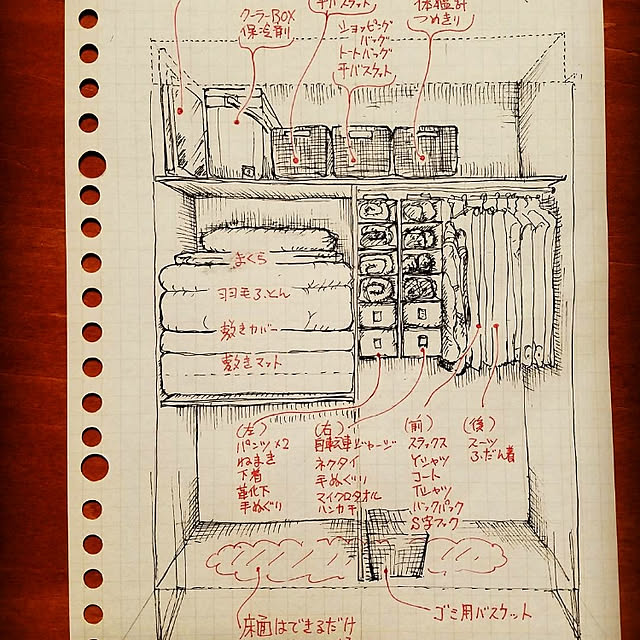 クーラーBOX
保冷剤
干バスケット
ショッピング
バッグ
トートバッグ
干バスケット
体温計
つめきり
まくら
羽毛ふとん
敷きカバー
敷きマット
(左)
パンツ×2
ねまき
下着
靴下
手ぬぐい
(右)
自転車ジャージ
ネクタイ
手ぬぐい
マイクロタオル
ハンカチ
(前)
スラックス
Yシャツ
コート
Tシャツ
バックパック
S字フック
(後)
スーツ
ふだん着
床面はできるだけ
ゴミ用バスケット